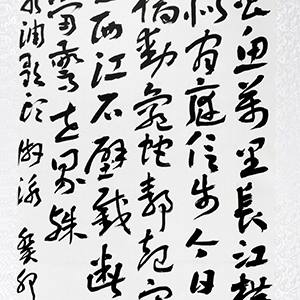 昌魚萬里長江橫
似閒庭信步今日
檣動龜蛇靜起宏
立西江石壁截斷
當驚世界殊
水調歌頭 游泳 癸卯